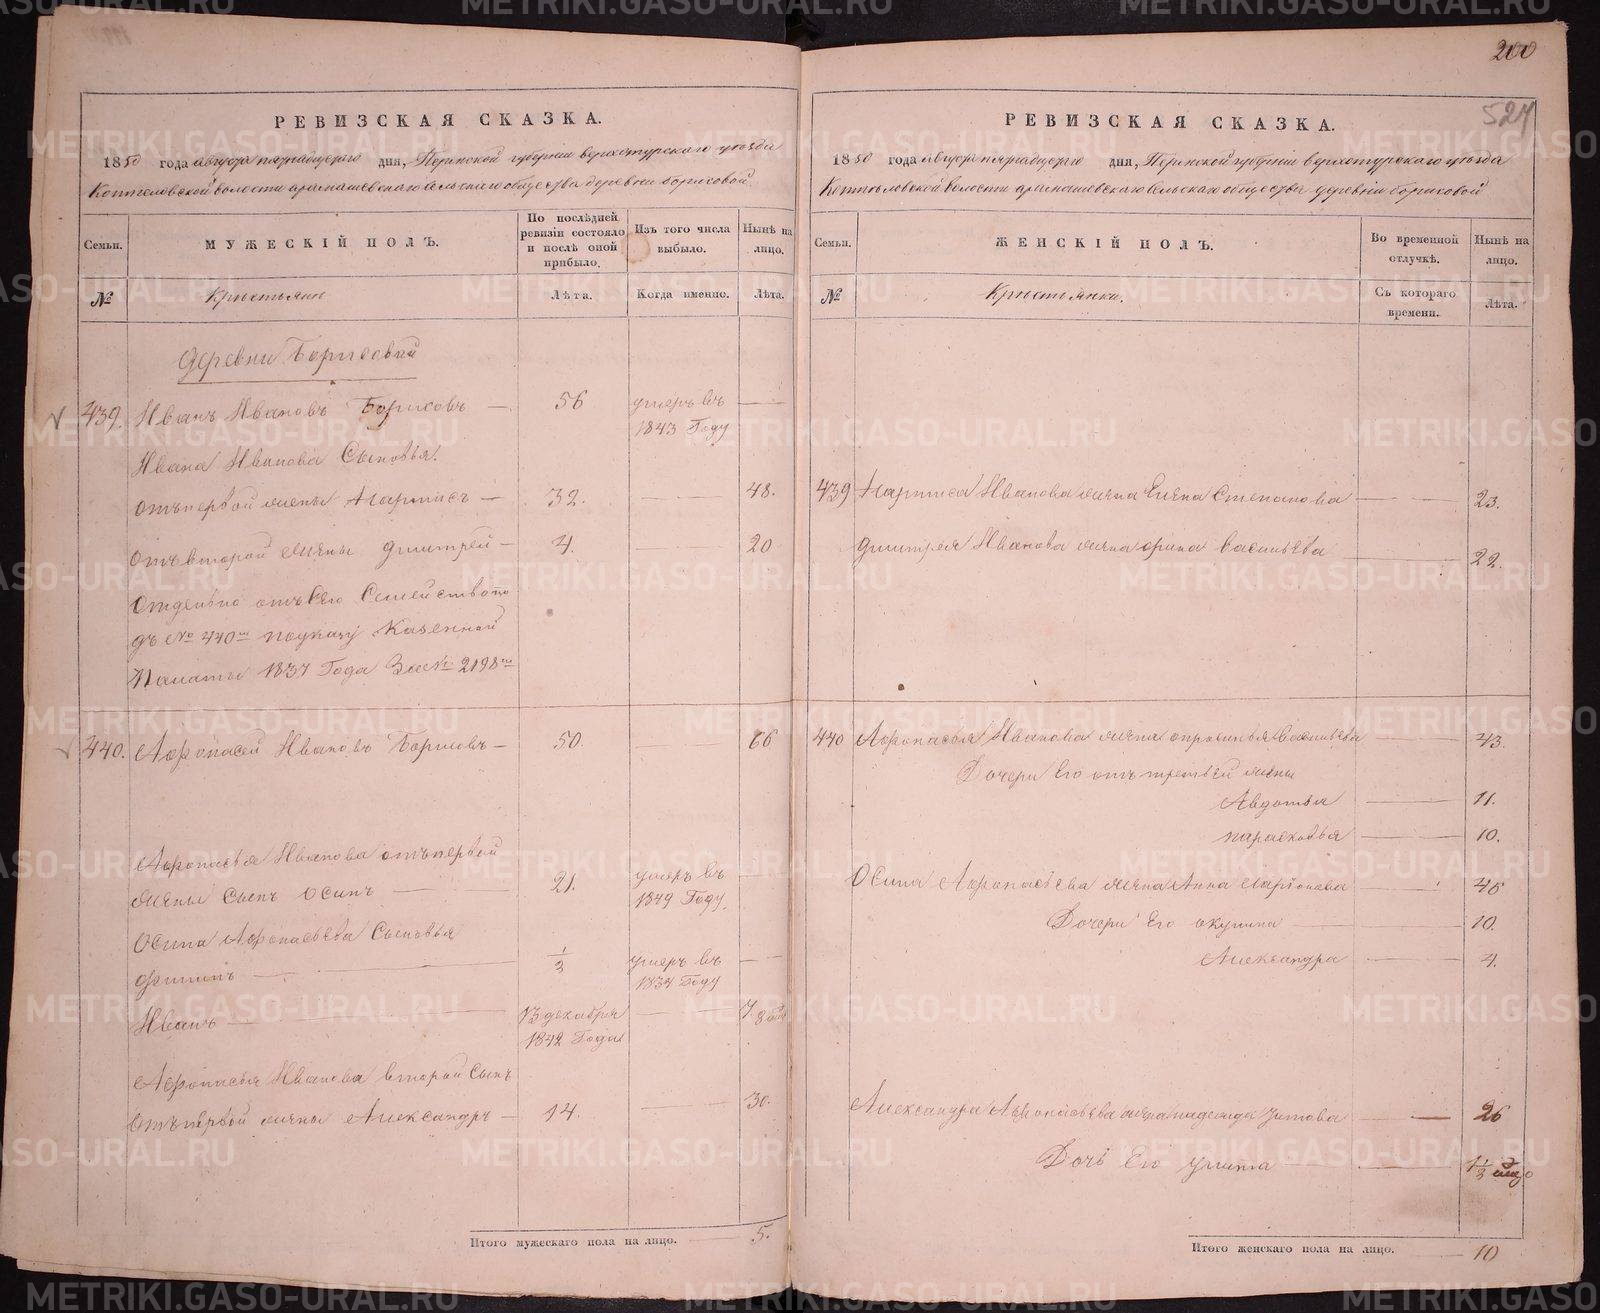 200
527
РЕВИЗСКАЯ СКАЗКА.
1850 года августа пятнадцатого дня, Пермской губернии верхотурскаго уезда
Коптеловской волости арамашевскаго сельскаго общества деревни борисовой
Семьи.
МУЖЕСКІЙ ПОЛЪ.
По послѣдней ревизіи состояло и послѣ оной прибыло.
Изъ того числа выбыло.
Нынѣ на лицо.
№
Крестьяне
Лѣта.
Когда именно.
Лѣта.
Деревни Борисовой
439. Иванъ Ивановъ Борисовъ — 56 умеръ въ 1843 Году —
Ивана Иванова Сыновья.
отъ первой жены — 32. — 48.
отъ второй жены дмитрей — 4. — 20
Отдельно отъ Его Семейство по
дъ № 440м по указу Казенной
Палаты 1837 Года За № 2198м
440. Афонасей Ивановъ Борисовъ — 50. — 66
Афонасья Иванова отъ первой
жены Сынъ Осипъ — 21. умеръ въ 1849 Году. —
Осипа Афонасьева Сыновья
филипъ — 1/2 умеръ въ —
Иванъ — 13 декабря 1842 Года — 7.
Афонасья Иванова второй Сынъ
отъ первой жены Александръ — 14. — 30.
Итого мужескаго пола на лицо. — 5.
РЕВИЗСКАЯ СКАЗКА.
1850 года августа пятнадцатого дня, Пермской губернии верхотурскаго уезда
Коптеловской волости арамашевскаго сельскаго общества деревни борисовой
Семьи.
ЖЕНСКІЙ ПОЛЪ.
Во временной отлучкѣ.
Нынѣ на лицо.
№
Крестьянки.
Съ котораго времени.
Лѣта.
439 Иванова жена Елена Степанова — 23.
дмитрея Иванова жена орина васильева — 22.
440 Афонасья Иванова жена васильева — 43.
Дочери Его отъ третьей жены
Авдотья — 11.
парасковья — 10.
Осипа Афонасьева жена Анна — 45
Дочери Его окулина — 10.
Александра — 4.
Александра Афонасьева жена надежда титова — 26
Дочь Его улита —
Итого женскаго пола на лицо. — 10